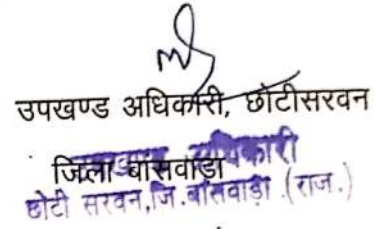 उपखण्ड अधिकारी, छोटीसरवन
जिला बांसवाडा
उपखण्ड अधिकारी
छोटी सरवन,जि.बांसवाड़ा (राज.)